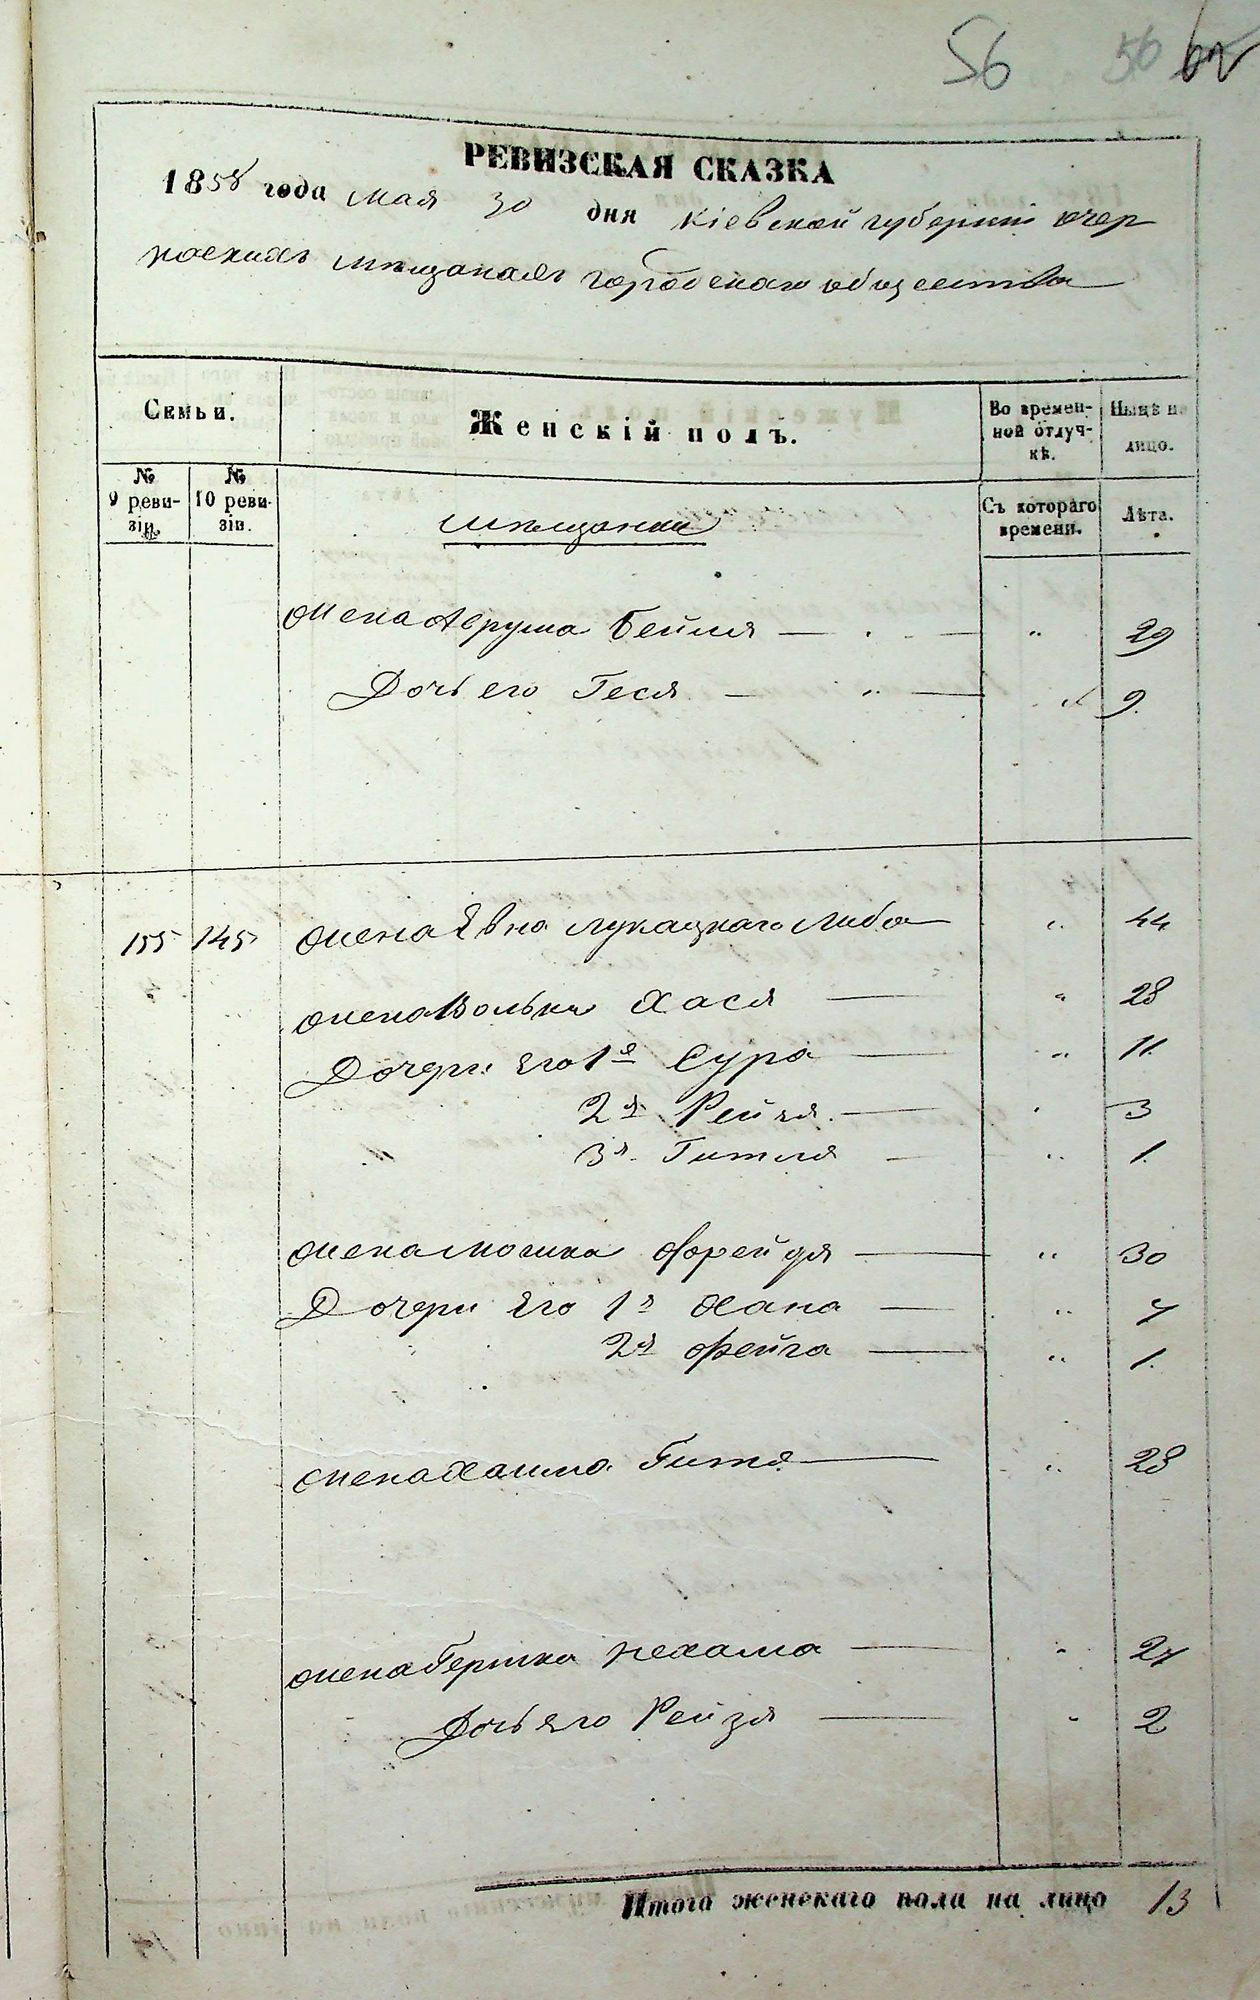 56 56
РЕВИЗСКАЯ СКАЗКА
1858 года мая 30 дня Кіевской губерніи о чер
каскихъ мѣщанахъ городскаго общества
Семьи.
Женскій полъ.
Во времен-
ной отлуч-
кѣ.
Нынѣ на
лицо.
№
9 реви-
зіи.
№
10 реви-
зіи.
Съ котораго
времени.
Лѣта.
мѣщанки
жена Аврума Бейля — „ — „ 29
Дочь его Геся — „ — „ 9.
155 145 жена Евна Лукацкаго Либа „ 44
жена Волька Хася — „ 28
Дочери Его 1я Сура — „ 11.
2я Рейзя — „ 3
3я Гитля — „ 1.
жена Мошка Фрейдя — „ 30
Дочери Его 1я Хана — „ 7
2я Фейга — „ 1.
жена Хаима Гитя — „ 28
жена Гершка Нехама — „ 27
Дочь Его Рейзя — „ 2
Итого женскаго пола на лицо 13